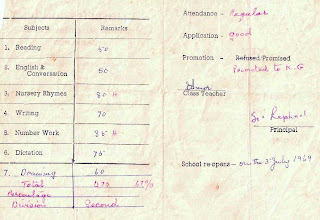 Subjects Remarks
1. Reading 50
2. English & Conversation 50
3. Nursery Rhymes 80 H
4. Writing 70
5. Number Work 85 H
6. Dictation 75
7. Drawing 60
Total 470 67%
Percentage
Division Second
Attendance - Regular
Application - good
Promotion - Refused/Promised
Promoted to K.G
Class Teacher
Sr. Raphael
Principal
School re-opens - on the 3rd July 1969